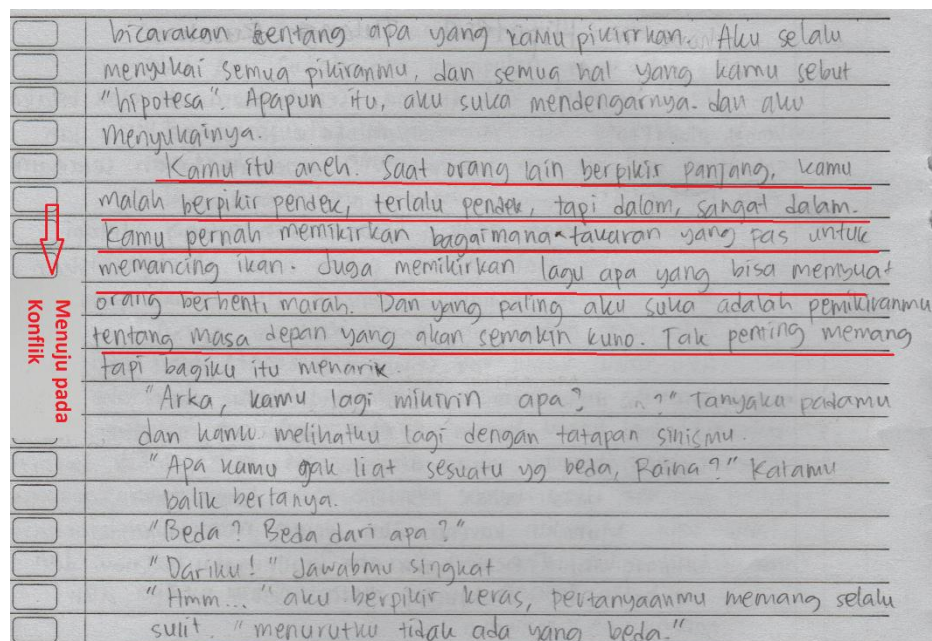 bicarakan tentang apa yang kamu pikirrkan. Aku selalu
menyukai semua pikiranmu, dan semua hal yang kamu sebut
"hipotesa" Apapun itu, aku suka mendengarnya. dan aku
menyukainya.
Kamu itu aneh. Saat orang lain berpikir panjang, kamu
malah berpikir pendek, terlalu pendek, tapi dalam, sangat dalam.
Kamu pernah memikirkan bagaimana takaran yang pas untuk
memancing ikan. Juga memikirkan lagu apa yang bisa membuat
orang berhenti marah. Dan yang paling aku suka adalah pemikiranmu
tentang masa depan yang akan semakin kuno. Tak penting memang
tapi bagiku itu menarik.
"Arka, kamu lagi mikirin apa? ?" Tanyaku padamu
dan kamu melihatku lagi dengan tatapan sinismu.
"Apa kamu gak liat sesuatu yg beda, Raina?" Katamu
balik bertanya.
"Beda? Beda dari apa?"
"Dariku!" Jawabmu singkat
"Hmm..." aku berpikir keras, pertanyaanmu memang selalu
sulit. "menurutku tidak ada yang beda."
Menuju pada
Konflik